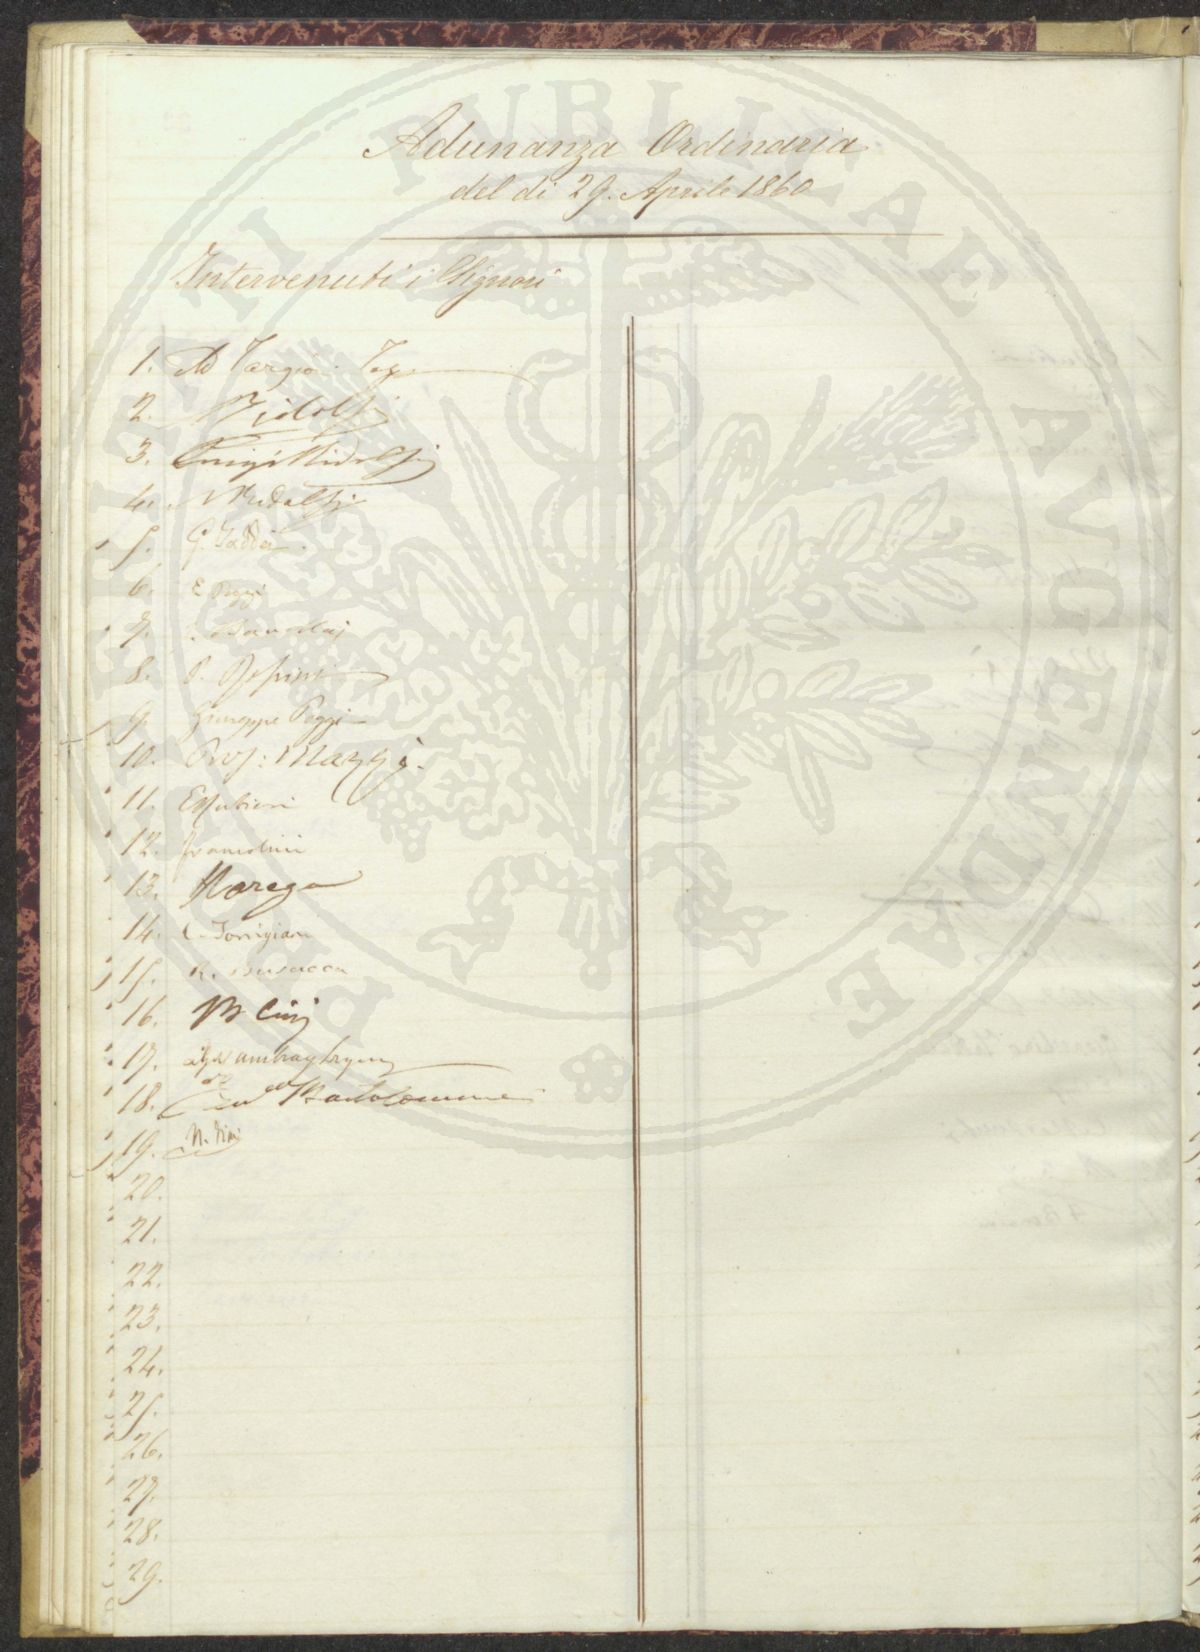 Adunanza Ordinaria
del dì 29. Aprile 1860
Intervenuti i Signori
1. Ad Targioni Tozz
2. Ridolfi
3. Luigi Ridolfi
4. Ridolfi
5. G. Taddei
6. E Poggi
7.
8. P.
9. Giuseppe Poggi
10. Prof: Mazzi
11. E Rubieri
12. Francolini
13. Marega
14. C. Torrigiani
15. R. Busacca
16. B Cini
17.
18. Bartolommei
19. N.
20.
21.
22.
23.
24.
25.
26.
27.
28.
29.
PROSPERITATI PUBLICAE AVGENDAE